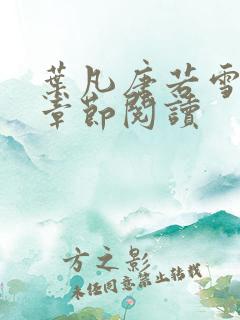 葉凡唐若雪
章節閱讀
方之影
未任同意禁止转载